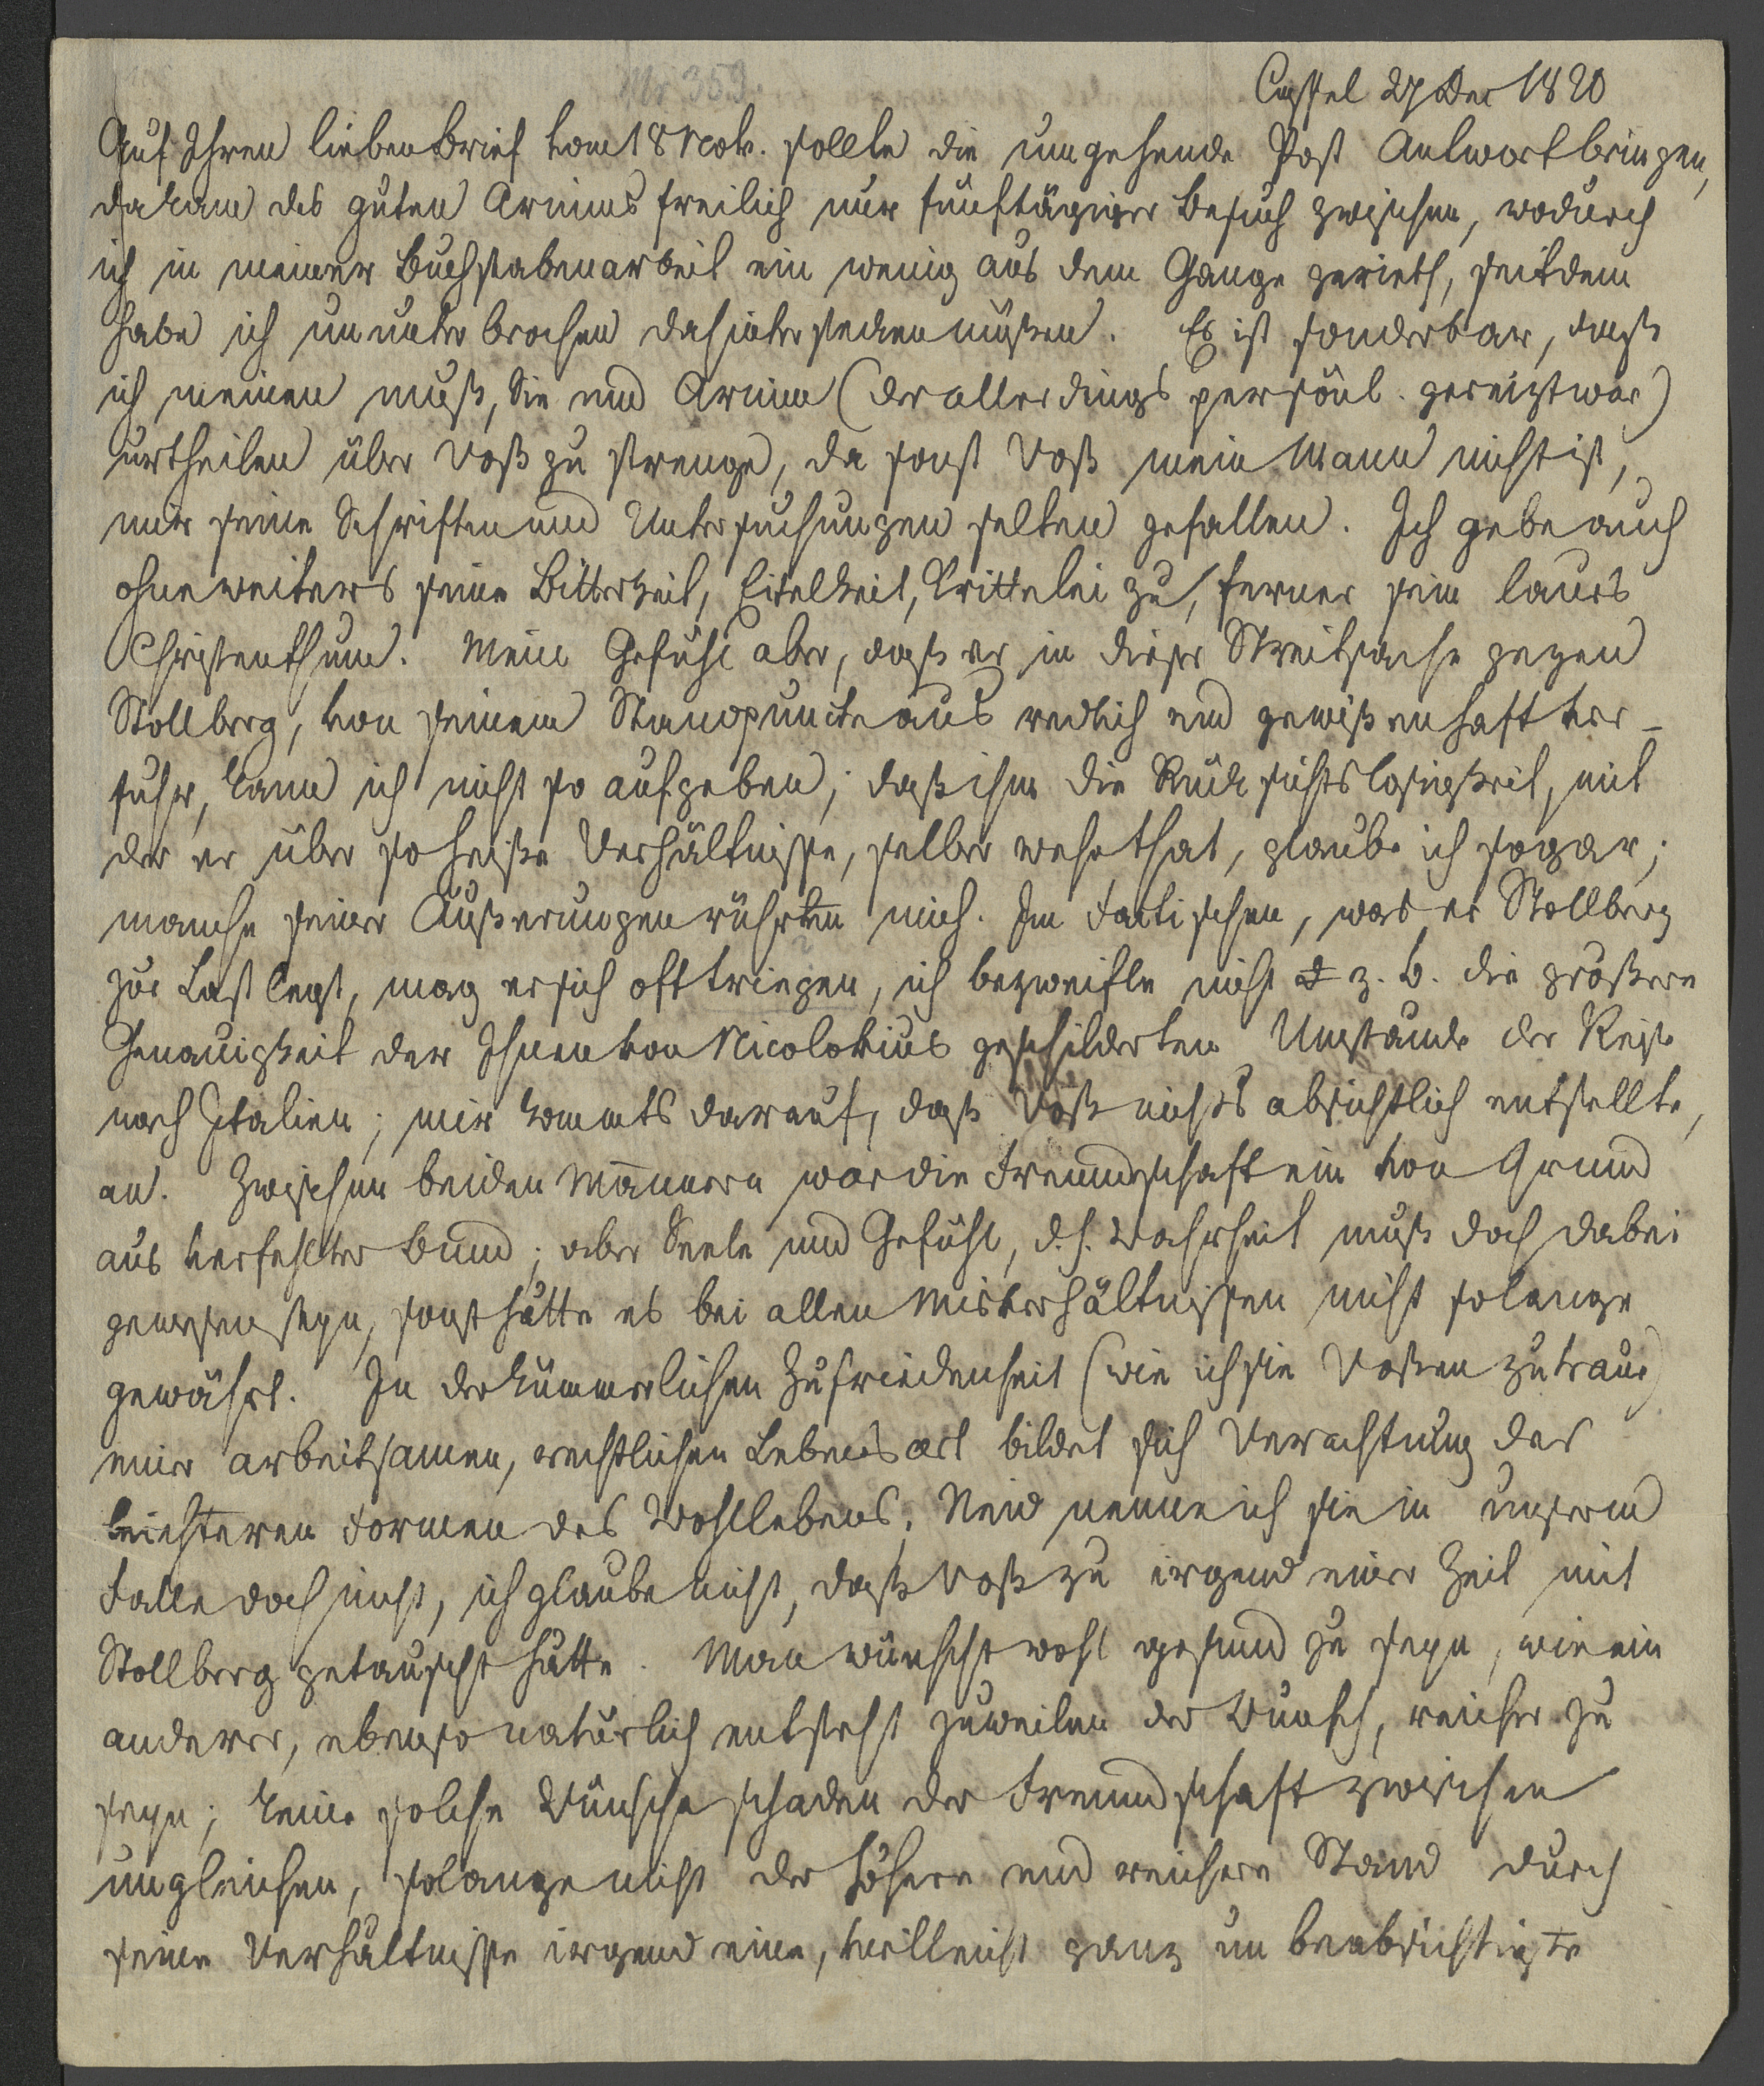 Nr 359.
Cassel 27 Dec 1820
Auf Ihren lieben Brief vom 18 Nov. sollte die umgehende Post Antwort bringen,
da kam des guten Arnims freilich nur fünftägiger Besuch zwischen, wodurch
ich in meiner Buchstabenarbeit ein wenig aus dem Gange gerieth, seitdem
habe ich ununterbrochen dahinter stecken müßen. Es ist sonderbar, daß
ich meinen muß, Sie und Arnim (der allerdings persönl. gereizt war)
urtheilen über Voß zu strenge, da sonst Voß mein Mann nicht ist,
mir seine Schriften und Untersuchungen selten gefallen. Ich gebe auch
ohne weiters seine Bitterkeit, Eitelkeit, Krittelei zu, ferner sein laues
Christenthum. Mein Gefühl aber, daß er in dieser Streitsache gegen
Stollberg, von seinem Standpuncte aus redlich und gewißenhaft ver-
fuhr, kann ich nicht so aufgeben; daß ihm die Rücksichtslosigkeit, mit
der er über so heiße Verhältnisse, selber wehe that, glaube ich sogar;
manche seiner Äußerungen rührten mich. Im Factischen, was er Stollberg
zur Last legt, mag er sich oft triegen, ich bezweifle nicht z. b. die größere
Genauigkeit der Ihnen von Nicolovius geschilderten Umstände der Reise
nach Italien; mir kommts darauf, daß Voß nichts absichtlich entstellte,
an. Zwischen beiden Männern war die Freundschaft ein von Grund
aus verfehlter Bund; aber Seele und Gefühl, d. h. Wahrheit muß doch dabei
gewesen seyn, sonst hätte es bei allen Misverhältnissen nicht solange
gewährt. In der kümmerlichen Zufriedenheit (wie ich sie Voßen zutraue)
einer arbeitsamen, rechtlichen Lebensart bildet sich Verachtung der
leichteren Formen des Wohllebens; Neid nenne ich sie in unserm
Falle doch nicht, ich glaube nicht, daß Voß zu irgend einer Zeit mit
Stollberg getauscht hätte. Man wünscht wohl gesund zu seyn, wie ein
anderer, ebenso natürlich entsteht zuweilen der Wunsch, reicher zu
seyn; keine solche Wünsche schaden der Freundschaft zwischen
ungleichen, solange nicht der höhere und reichere Stand durch
seine Verhältnisse irgend eine, vielleicht ganz un beabsichtigte